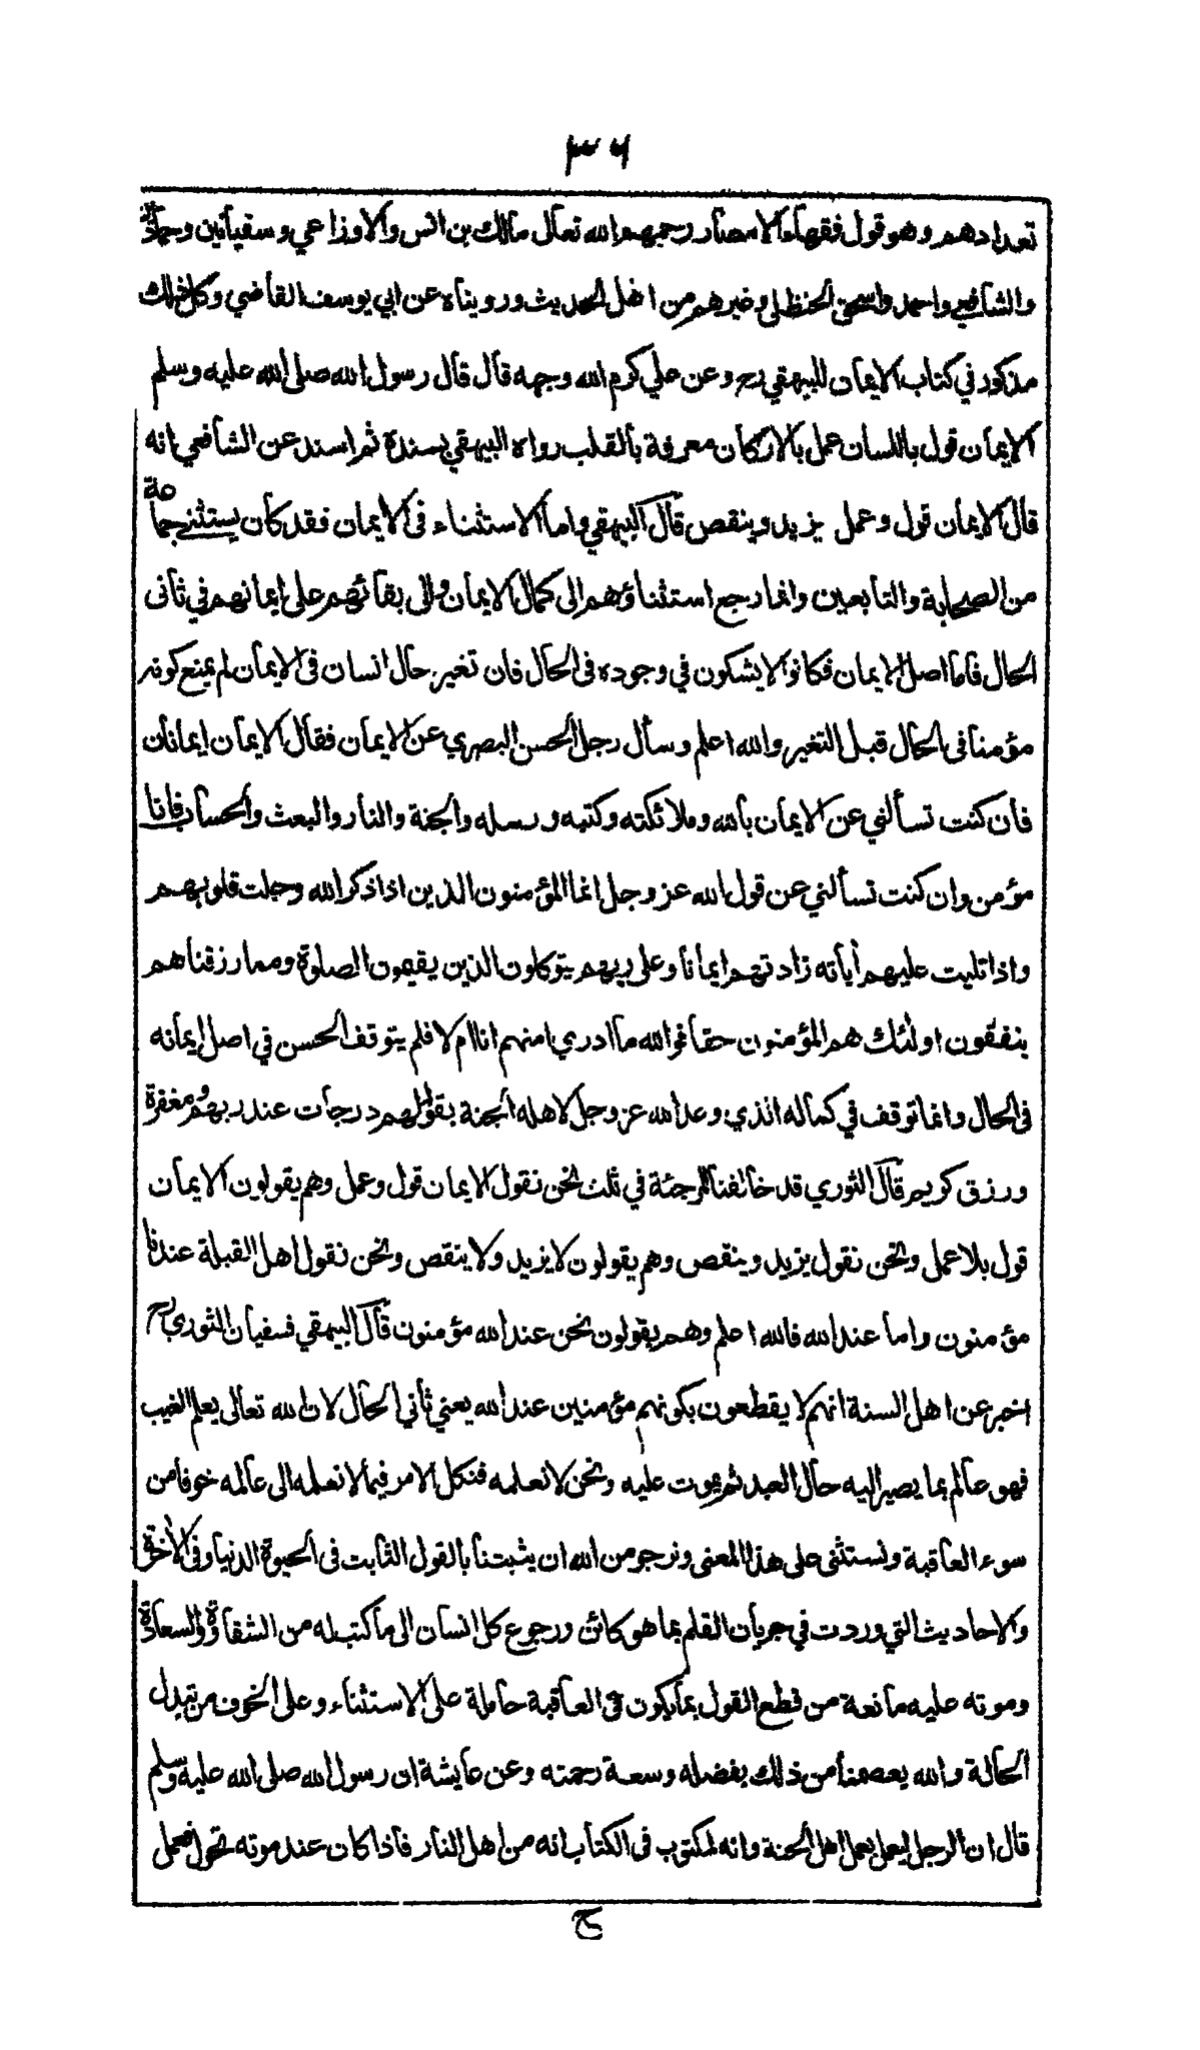 ٣٦
تعدادهم وهو قول فقهاء الامصار رحمهم الله تعالى مالك بن انس والاوزاعي وسفيانين وحماد
والشافعي واحمد واسحق الحنظلي وغيرهم من اهل الحديث ورويناه عن ابي يوسف القاضي وكل ذلك
مذكور في كتاب الايمان للبيهقي رح وعن علي كرم الله وجهه قال قال رسول الله صلى الله عليه وسلم
الايمان قول باللسان عمل بالاركان معرفة بالقلب رواه البيهقي بسنده ثم اسند عن الشافعي انه
قال الايمان قول وعمل يزيد وينقص قال البيهقي واما الاستثناء فى الايمان فقد كان يستثنے جماعة
من الصحابة والتابعين وانما رجع استثناؤهم الى كمال الايمان والى بقائهم على ايمانهم في ثانى
الحال فاما اصل الايمان فكانوا لا يشكون في وجوده فى الحال فان تغير حال انسان فى الايمان لم يمنع كونه
مؤمنا فى الحال قبل التغير والله اعلم وسأل رجل الحسن البصري عن الايمان فقال الايمان ايمانان
فان كنت تسألني عن الايمان بالله وملائكته وكتبه ورسله والجنة والنار والبعث والحساب فانا
مؤمن وان كنت تسألني عن قول الله عز وجل انما المؤمنون الذين اذا ذكر الله وجلت قلوبهم
واذا تليت عليهم أياته زادتهم ايمانا وعلى ربهم يتوكلون الذين يقيمون الصلوة ومما رزقناهم
ينفقون اولئك هم المؤمنون حقا فوالله ما ادري امنهم انا ام لا فلم يتوقف الحسن في اصل ايمانه
فى الحال وانما توقف في كماله الذي وعد الله عز وجل لاهله الجنة بقوله لهم درجات عند ربهم ومغفرة
ورزق كريم قال الثوري قد خالفنا المرجئة في ثلث نحن نقول الايمان قول وعمل وهم يقولون الايمان
قول بلا عمل ونحن نقول يزيد وينقص وهم يقولون لا يزيد ولا ينقص ونحن نقول اهل القبلة عندنا
مؤمنون واما عند الله فالله اعلم وهم يقولون نحن عند الله مؤمنون قال البيهقي فسفيان الثوري رح
اخبر عن اهل السنة انهم لا يقطعون بكونهم مؤمنين عند الله يعني ثاني الحال لان الله تعالى يعلم الغيب
فهو عالم بما يصير اليه حال العبد ثم يموت عليه ونحن لا نعلمه فنكل الامر فيما لا نعلمه الى عالمه خوفا من
سوء العاقبة ونستثنى على هذا المعنى ونرجو من الله ان يثبتنا بالقول الثابت فى الحيوة الدنيا وفى الأخرة
والاحاديث التي وردت في جريان القلم بما هو كائن ورجوع كل انسان الى ما كتب له من الشقاوة والسعادة
وموته عليه مانعة من قطع القول بما يكون فى العاقبة حاملة على الاستثناء وعلى الخوف من تبدل
الحالة والله يعصمنا من ذلك بفضله وسعة رحمته وعن عايشة ان رسول الله صلى الله عليه وسلم
قال ان الرجل ليعمل بعمل اهل الجنة وانه لمكتوب فى الكتاب انه من اهل النار فاذا كان عند موته تحول فعمل